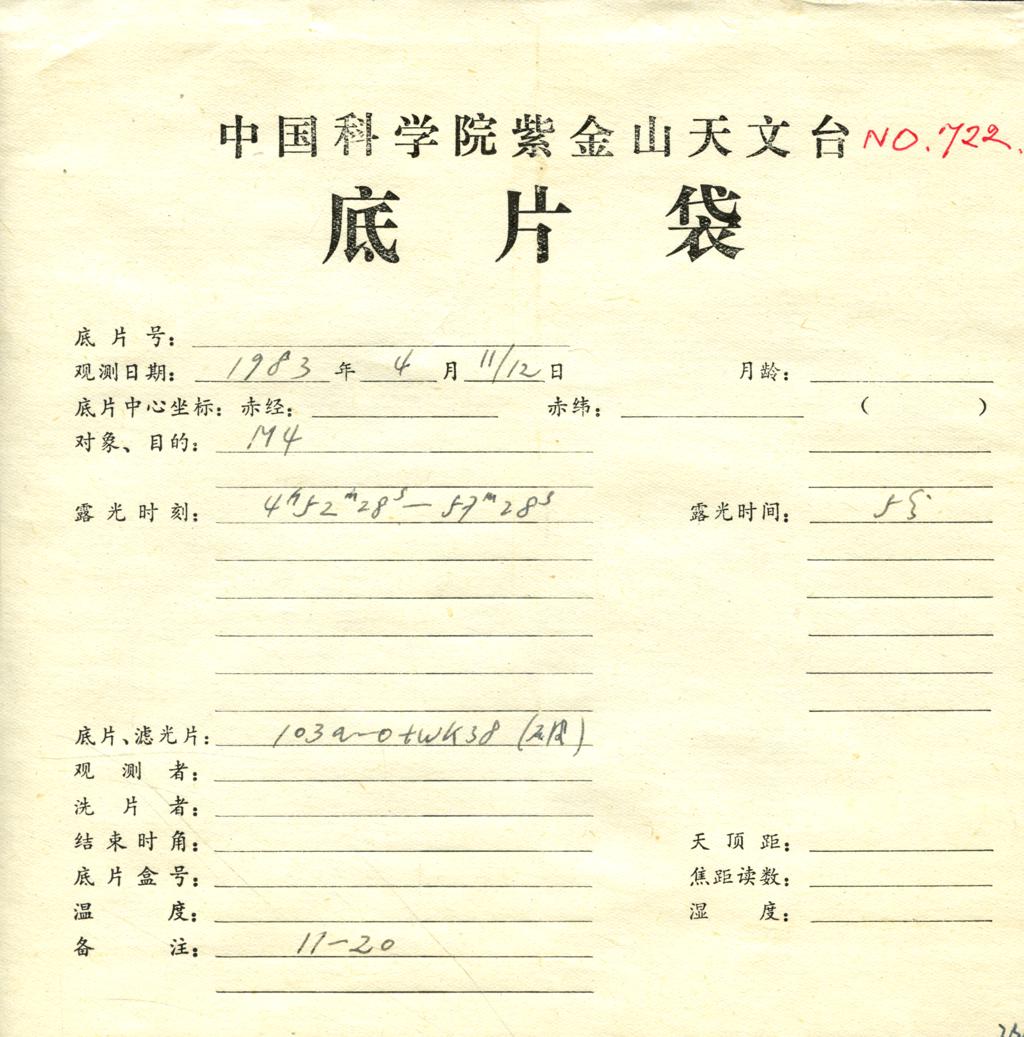 中国科学院紫金山天文台 NO.722.
底片袋
底片号：
观测日期： 1983 年 4 月 11/12 日 月龄：
底片中心坐标：赤经： 赤纬： （ ）
对象、目的： M4
露光时刻： 4h52m28s—57m28s 露光时间： 5分
底片、滤光片： 103a-O+WK38
观测者：
洗片者：
结束时角： 天顶距：
底片盒号： 焦距读数：
温度： 湿度：
备注： 11-20